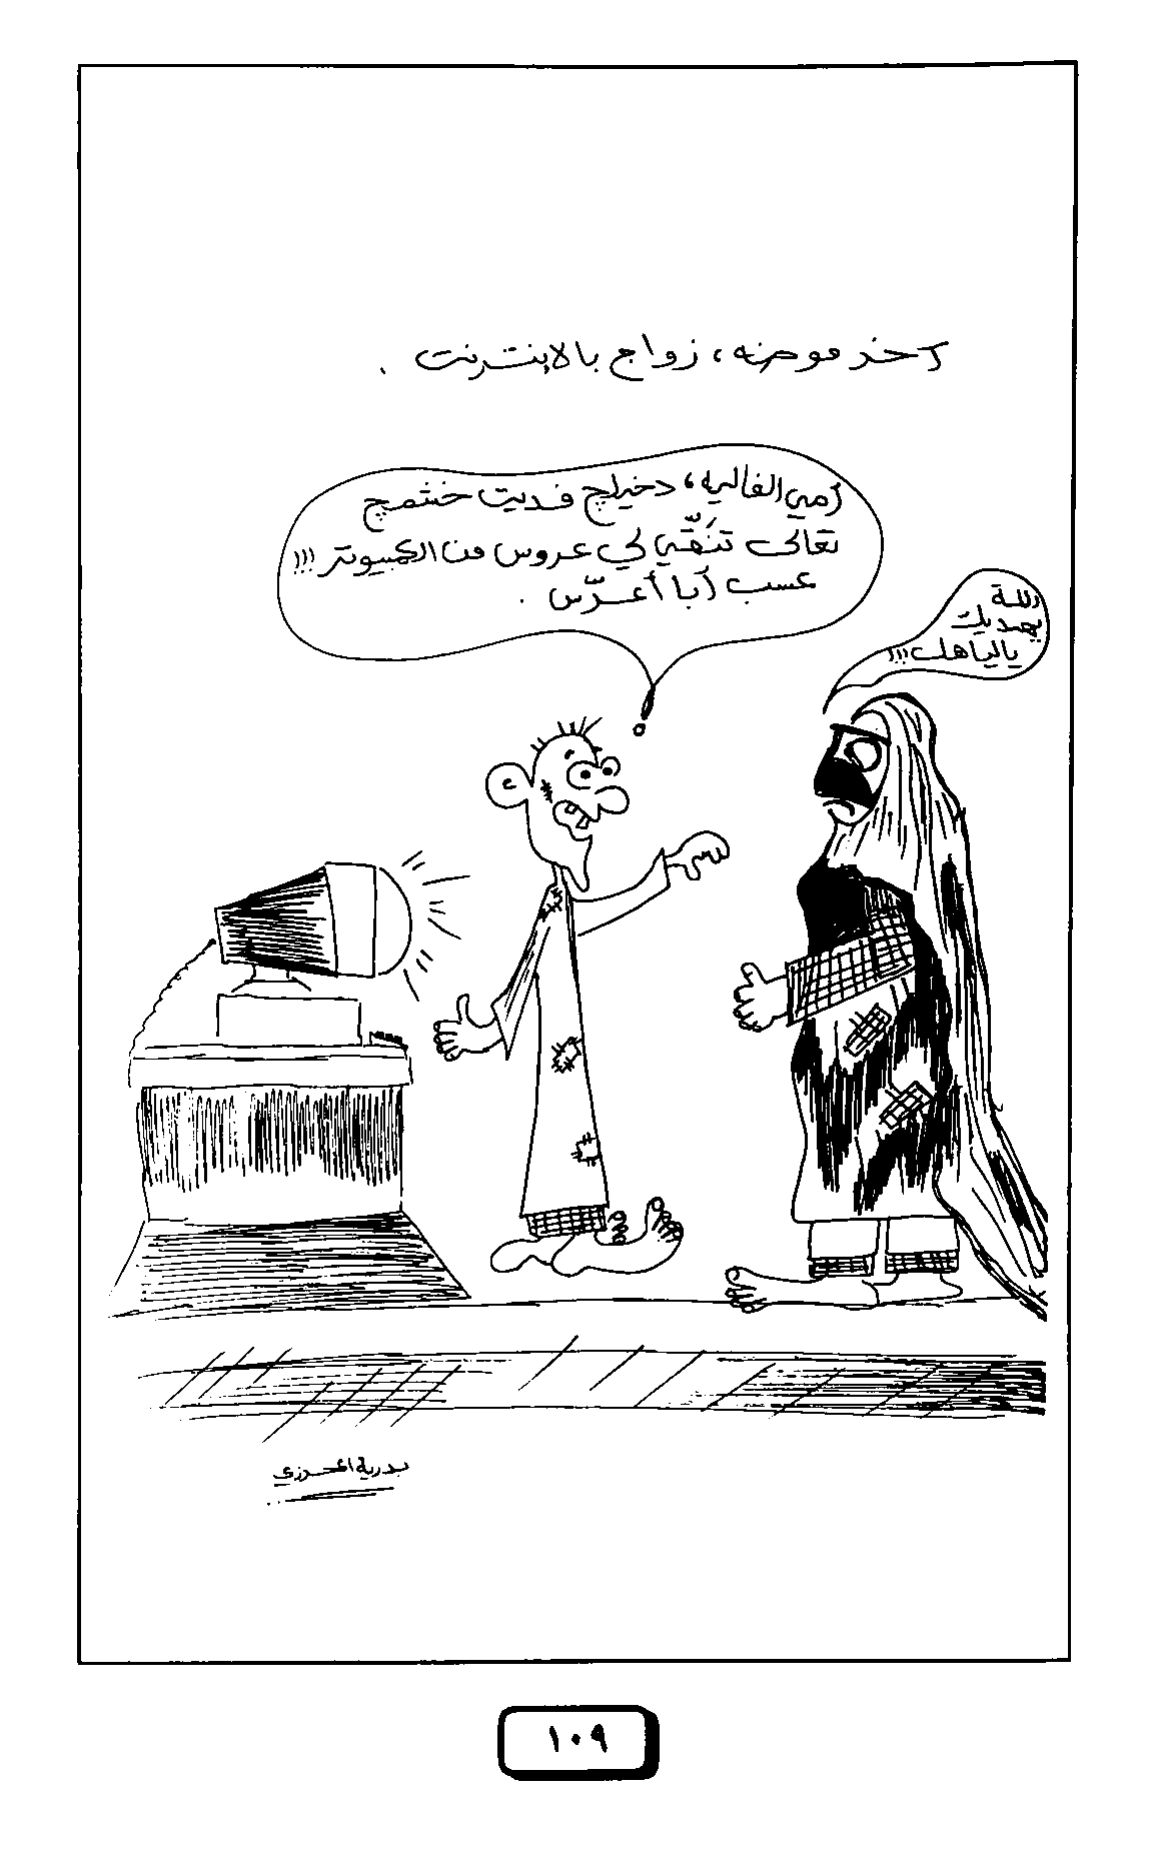 آخر موضه، زواج بالإنترنت .
أمي الغاليه، دخيلچ فديت خشمچ
تعالي تنَقّي لي عروس من الكمبيوتر !!!
عسب أبا أعرّس .
الله
يهديك
يالياهل !!!
بدرية المحرزي
١٠٩